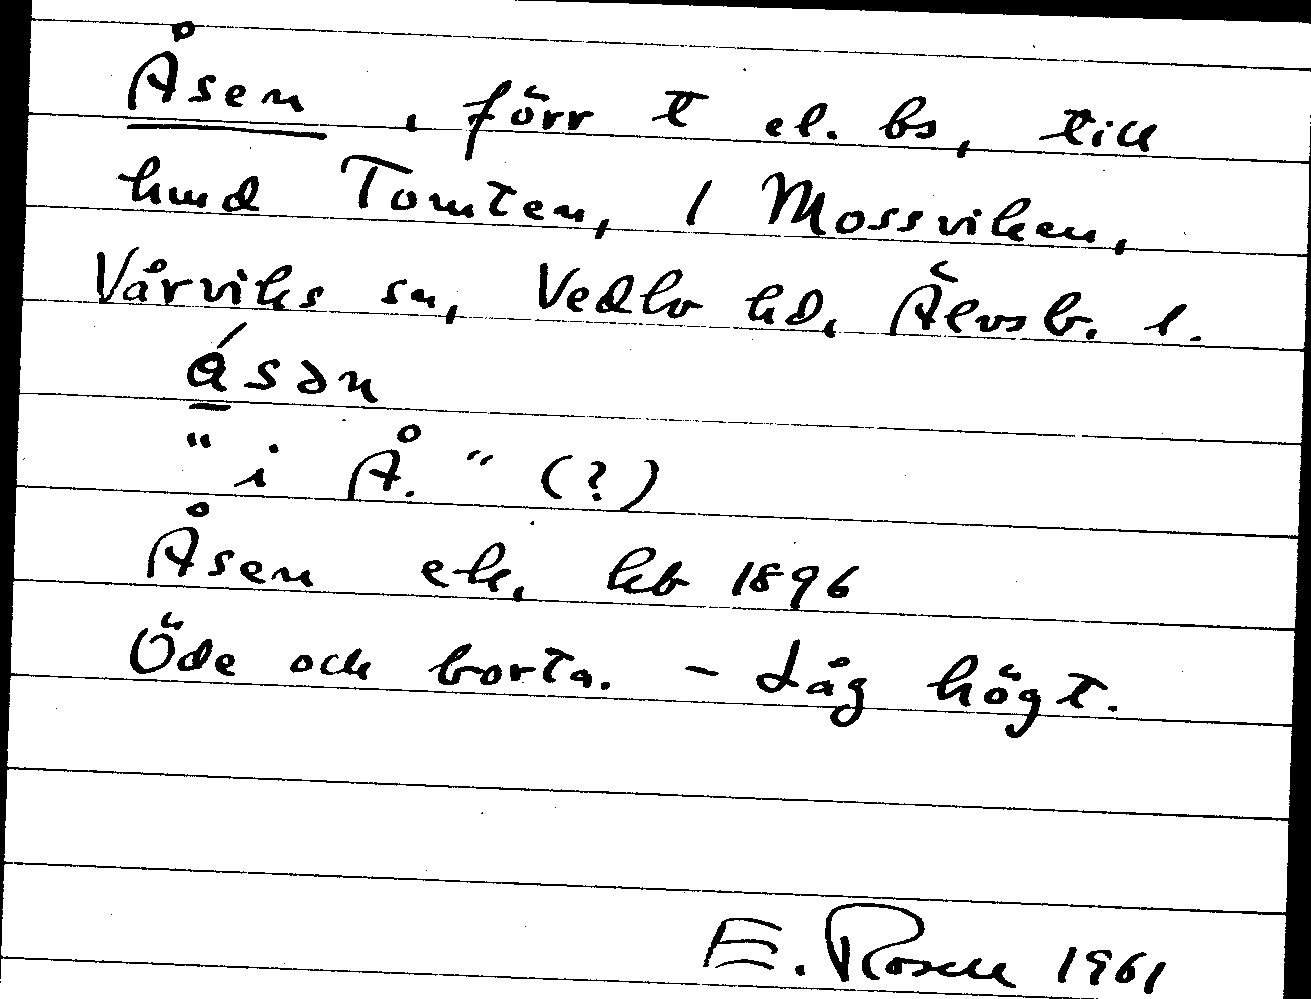 Åsen, förr t el. bs, till
hmd Tomten, 1 Mossviken,
Vårviks sn, Vedbo hd, Älvsb. l.
ásən
"i Å." (?)
Åsen ek. kb 1896
Öde och borta. - Låg högt.
E. Rosell 1961